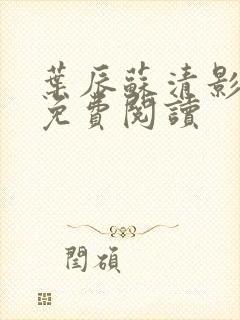 葉辰蘇清影
免費閱讀
閏碩